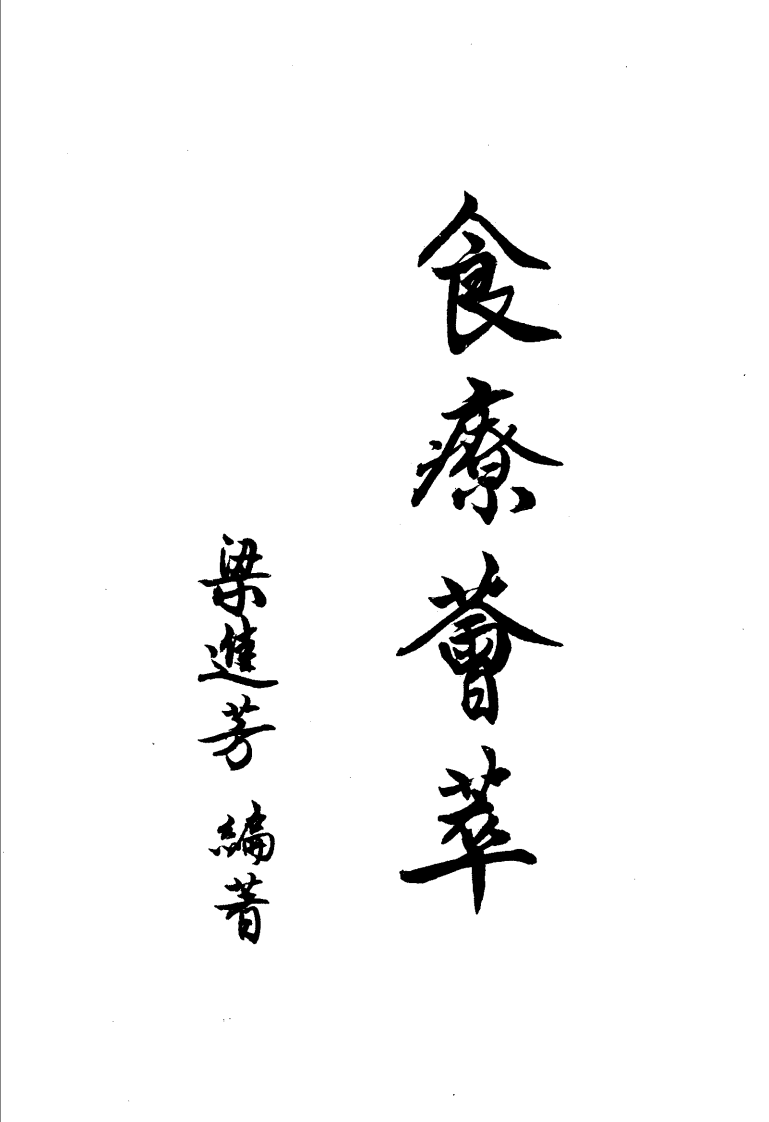 食療薈萃
梁進芳 編著